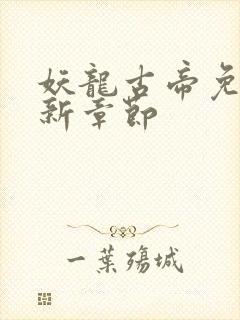 妖龍古帝免
新章節
一葉殤城